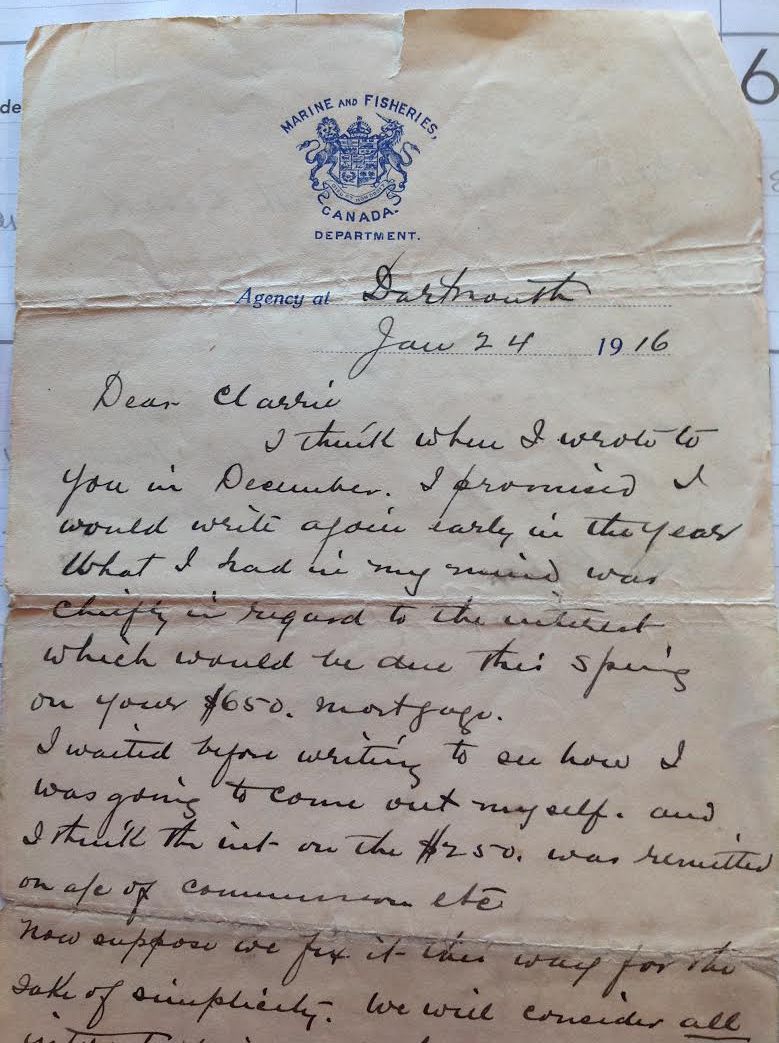 de
6
MARINE AND FISHERIES,
CANADA.
DEPARTMENT.
Agency at Dartmouth
Jan 24 1916
Dear Clarrie
I think when I wrote to
you in December. I promised I
would write again early in the year
What I had in my mind was
chiefly in regard to the interest
which would be due this spring
on your $650. mortgage.
I waited before writing to see how I
was going to come out myself. and
I think the int on the $250. was remitted
on a/c of commission etc
Now suppose we fix it this way for the
sake of simplicity. We will consider all